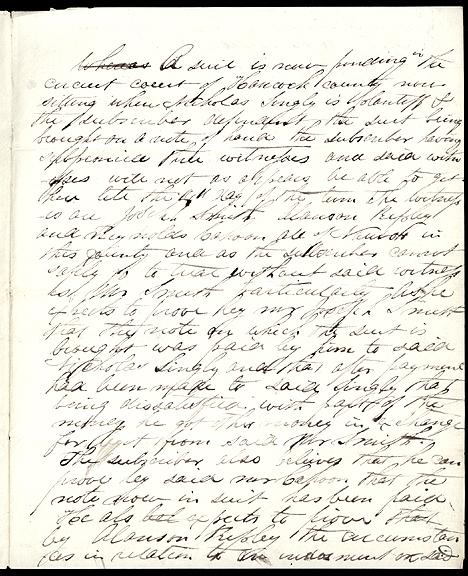 Whereas A suit is now pending in the
circuit court of Hancock county now
sitting when Nicholas Singly is Plantiff &
the subscriber defendent, the suit being
brought on a note of hand the subscriber having
three witnesses and said witn
esses will not as appears be able to get
here till the day of the term the witness
es are Joseph Smith Alanson Ripley
and Reynolds Cahoon all of Nauvoo in
this county and as the subscriber cannot
safely go to trial without said witness
es, Mr Smith particularly as he
expects to prove by Mr Joseph Smith
that the note on which the suit is
brought was paid by him to said
Nicholas Singly and that after payment
had been made to said Singly that
being dissatisfied with part of the
money he got other money in exchange
for it from said Mr. Smith.
The subscriber also believes that he can
prove by said Mr Cahoon that the
note now in suit has been paid
He also expects to prove that
by Alanson Ripley the circumstan
ces in relation to an indorsment on said